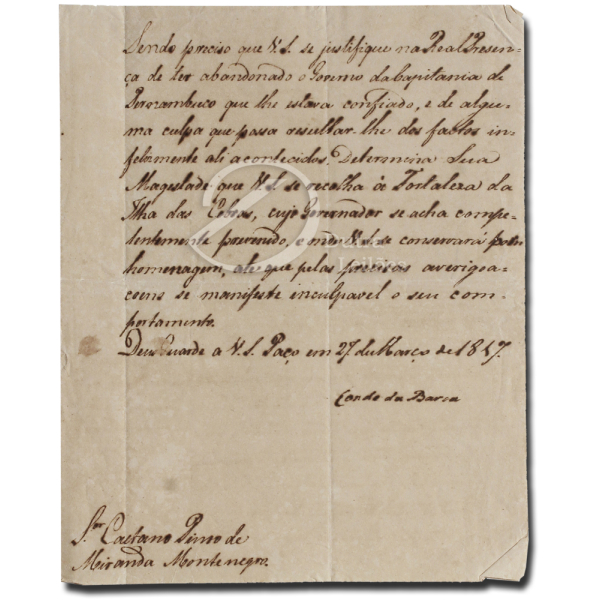 Sendo preciso que V.S. se justifique na Real Presen-
ça de ter abandonado o Governo da Capitania de
Pernambuco que lhe estava confiado, e de algu-
ma culpa que possa resultar-lhe dos factos in-
felizmente ali acontecidos: Determina Sua
Magestade que V.S. se recolha à Fortaleza da
Ilha das Cobras, cujo Governador se acha compe-
tentemente prevenido, e onde V.S. se conservará
homenagem, até que pelas precisas averigoa-
coens se manifeste inculpavel o seu com-
portamento.
Deus Guarde a V.S. Paço em 27 de Março de 1817.
Conde da Barca
Snr. Caetano Pinto de
Miranda Montenegro.
Dinastia
Leilões